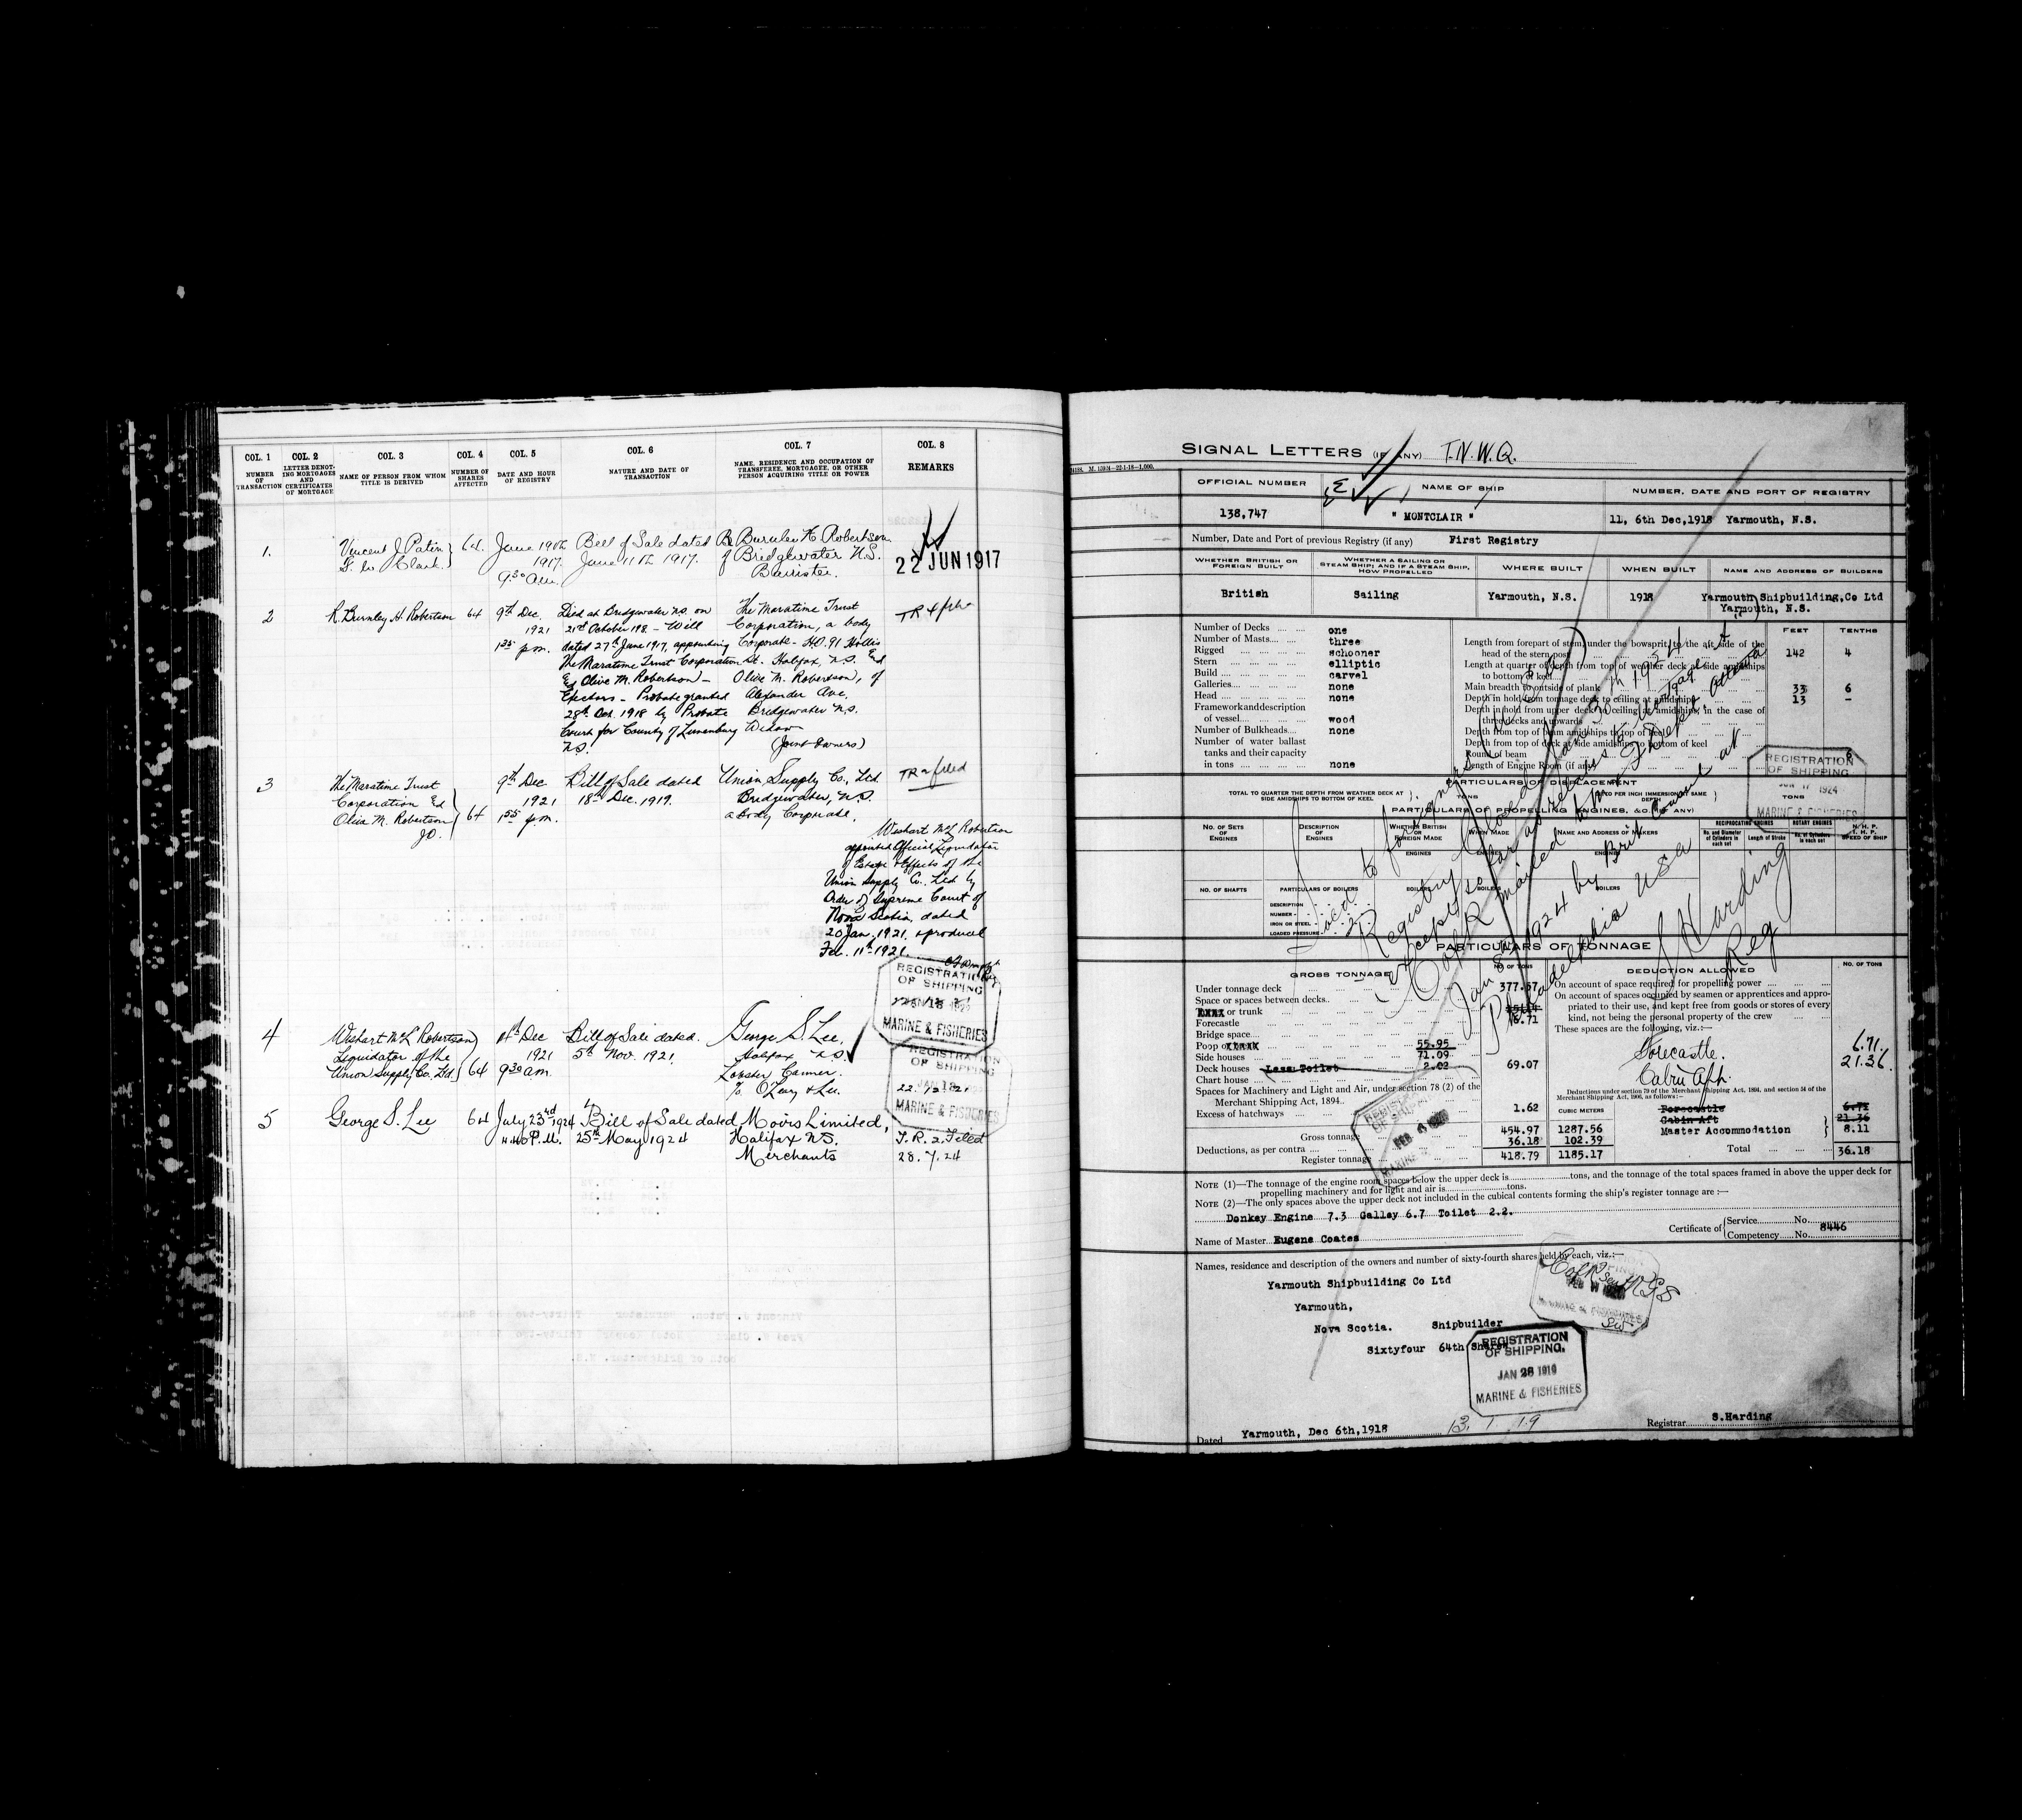 COL. 1 COL. 2 COL. 3 COL. 4 COL. 5 COL. 6 COL. 7 COL. 8
NUMBER OF TRANSACTION
LETTER DENOTING MORTGAGES AND CERTIFICATES OF MORTGAGE
NAME OF PERSON FROM WHOM TITLE IS DERIVED
NUMBER OF SHARES AFFECTED
DATE AND HOUR OF REGISTRY
NATURE AND DATE OF TRANSACTION
NAME, RESIDENCE AND OCCUPATION OF TRANSFEREE, MORTGAGEE, OR OTHER PERSON ACQUIRING TITLE OR POWER
REMARKS
1. Vincent J. Patin 64. June 19th Bill of Sale dated R. Burnley H. Robertson
F. W. Clark 1917. June 11th 1917. of Bridgewater N.S.
9.30 a.m. Barrister.
22 JUN 1917
2 R. Burnley H. Robertson 64 9th Dec. Died at Bridgewater N.S. on The Maratime Trust
1921 21st October 198 - Will Corporation, a body
1.35 p.m. dated 27th June 1917, appointing Corporate - H.O. 91 Hollis
The Maratime Trust Corporation St. Halifax, N.S. Ed
Ed Olive M. Robertson - Olive M. Robertson, of
Exectors - Probate granted Alexander Ave,
28th Oct. 1918 by Probate Bridgewater N.S.
Court for County of Lunenburg Widow
N.S. (Joint Owners)
3 The Maratime Trust 9th Dec Bill of Sale dated Union Supply Co. Ltd TR 2 filed
Corporation Ed 1921 18th Dec. 1919. Bridgewater, N.S.
Olive M. Robertson 64 1.55 p.m. a body Corporate.
J.O.
Wishart McL Robertson
appointed Official Liquidator
of Estate & Effects of the
Union Supply Co. Ltd by
Order of Supreme Court of
Nova Scotia, dated
20 Jan. 1921, & produced
Feb. 11th 1921.
REGISTRATION
OF SHIPPING
MARINE & FISHERIES
4 Wishart McL Robertson Dec Bill of Sale dated. George S. Lee,
Liquidator of the 1921 5th Nov. 1921. Halifax N.S.
Union Supply Co. Ltd. 64 9.30 a.m. Lobster Canner.
% O'Leary & Lee.
REGISTRATION
OF SHIPPING
JAN 18
MARINE & FISHERIES
5 George S. Lee 64 July 23rd 1924 Bill of Sale dated Moirs Limited,
4.40 P.M. 25th May 1924 Halifax N.S. T.R. 2. Filled
Merchants 28.7.24
SIGNAL LETTERS (IF ANY) T.N.W.Q.
OFFICIAL NUMBER NAME OF SHIP NUMBER, DATE AND PORT OF REGISTRY
138,747 " MONTCLAIR " 11, 6th Dec,1918 Yarmouth, N.S.
Number, Date and Port of previous Registry (if any) First Registry
WHETHER BRITISH OR FOREIGN BUILT
WHETHER A SAILING OR STEAM SHIP; AND IF A STEAM SHIP, HOW PROPELLED
WHERE BUILT WHEN BUILT NAME AND ADDRESS OF BUILDERS
British Sailing Yarmouth, N.S. 1918 Yarmouth Shipbuilding,Co Ltd
Yarmouth, N.S.
FEET TENTHS
Number of Decks one
Number of Masts three
Rigged schooner
Stern elliptic
Build carvel
Galleries none
Head none
Framework and description
of vessel wood
Number of Bulkheads none
Number of water ballast
tanks and their capacity
in tons none
Length from forepart of stem, under the bowsprit, to the aft side of the
head of the stern post 142 4
Length at quarter of depth from top of weather deck at side amidships
to bottom of keel
Main breadth to outside of plank 33 6
Depth in hold from tonnage deck to ceiling at amidships 13 —
Depth in hold from upper deck to ceiling at amidships, in the case of
three decks and upwards
Depth from top of beam amidships to top of keel
Depth from top of deck at side amidships to bottom of keel
Round of beam 6
Length of Engine Room (if any)
PARTICULARS OF DISPLACEMENT
TOTAL TO QUARTER THE DEPTH FROM WEATHER DECK AT SIDE AMIDSHIPS TO BOTTOM OF KEEL TONS
PARTICULARS OF PROPELLING ENGINES, &c. (IF ANY)
NO. OF SETS OF ENGINES
DESCRIPTION OF ENGINES
WHETHER BRITISH OR FOREIGN MADE
WHEN MADE
NAME AND ADDRESS OF MAKERS
RECIPROCATING ENGINES
ROTARY ENGINES
ENGINES
NO. OF SHAFTS
PARTICULARS OF BOILERS
DESCRIPTION
NUMBER
IRON OR STEEL
LOADED PRESSURE
BOILERS
REGISTRATION
OF SHIPPING
JUN 17 1924
MARINE & FISHERIES
Sold to foreigners
Registry closed Jan 30th 1925
except so far as relates to Mortgage
C of R mailed to Dept Ottawa
Jan 1924 by Brit Consul at
Philadelphia USA
S Harding
Reg
PARTICULARS OF TONNAGE
GROSS TONNAGE NO. OF TONS
DEDUCTION ALLOWED NO. OF TONS
Under tonnage deck 377.57
Space or spaces between decks
or trunk
Forecastle 6.71
Bridge space
Poop 55.95
Side houses 71.09
Deck houses Less Toilet 2.02 69.07
Chart house
Spaces for Machinery and Light and Air, under section 78 (2) of the
Merchant Shipping Act, 1894
Excess of hatchways 1.62 CUBIC METERS
Gross tonnage 454.97 1287.56
Deductions, as per contra 36.18 102.39
Register tonnage 418.79 1185.17
On account of space required for propelling power
On account of spaces occupied by seamen or apprentices and appropriated to their use, and kept free from goods or stores of every
kind, not being the personal property of the crew
These spaces are the following, viz.:—
Forecastle. 6.71.
Cabin Aft. 21.36.
Deductions under section 79 of the Merchant Shipping Act, 1894, and section 54 of the
Merchant Shipping Act, 1906, as follows:—
Forecastle 6.71
Cabin Aft 21.36
Master Accommodation 8.11
Total 36.18
NOTE (1)—The tonnage of the engine room spaces below the upper deck is tons, and the tonnage of the total spaces framed in above the upper deck for
propelling machinery and for light and air is tons.
NOTE (2)—The only spaces above the upper deck not included in the cubical contents forming the ship's register tonnage are :—
Donkey Engine 7.3 Galley 6.7 Toilet 2.2.
Name of Master Eugene Coates
Certificate of Service No. 8446
Competency No.
Names, residence and description of the owners and number of sixty-fourth shares held by each, viz.:—
Yarmouth Shipbuilding Co Ltd
Yarmouth,
Nova Scotia. Shipbuilder
Sixtyfour 64th Shares
REGISTRATION
OF SHIPPING.
JAN 28 1919
MARINE & FISHERIES
Dated Yarmouth, Dec 6th,1918 13. 1 19
Registrar S.Harding